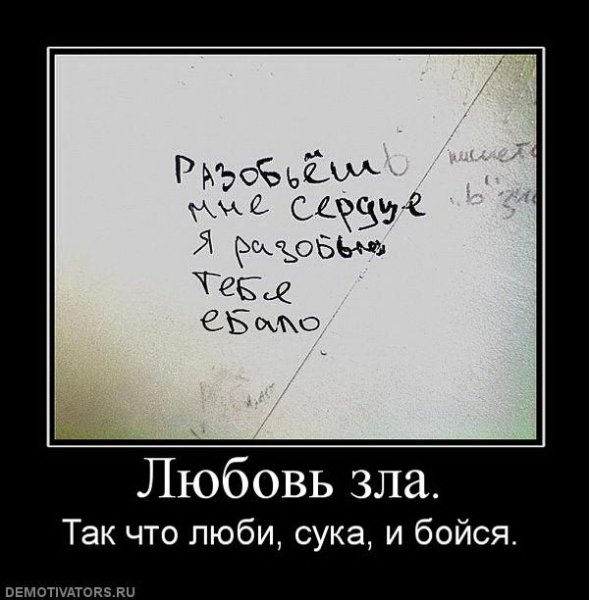 Разобьёшь
мне сердце
я разобью
тебе
ебало
пишется
"ь"
Любовь зла.
Так что люби, сука, и бойся.
DEMOTIVATORS.RU